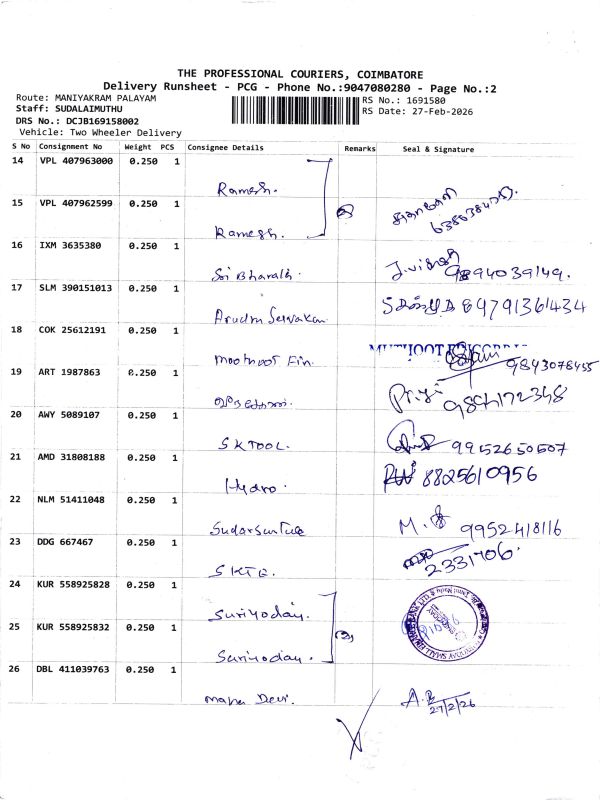 THE PROFESSIONAL COURIERS, COIMBATORE
Delivery Runsheet - PCG - Phone No.:9047080280 - Page No.:2
Route: MANIYAKRAM PALAYAM
Staff: SUDALAIMUTHU
DRS No.: DCJB169158002
Vehicle: Two Wheeler Delivery
RS No.: 1691580
RS Date: 27-Feb-2026
S No Consignment No Weight PCS Consignee Details Remarks Seal & Signature
14 VPL 407963000 0.250 1 Ramesh.
15 VPL 407962599 0.250 1 Ramesh.
16 IXM 3635380 0.250 1 Sri Bharath. 9894039149.
17 SLM 390151013 0.250 1 89791361434
18 COK 25612191 0.250 1 moothoot Fin. MUTHOOT 9843078455
19 ART 1987863 0.250 1 Priji
20 AWY 5089107 0.250 1 SKTOOL. 9952650507
21 AMD 31808188 0.250 1 Hydro. 8825610956
22 NLM 51411048 0.250 1 M. 9952418116
23 DDG 667467 0.250 1 SKTE. 2331706.
24 KUR 558925828 0.250 1 Suriyoday.
25 KUR 558925832 0.250 1 Suriyoday.
26 DBL 411039763 0.250 1 maha Devi. A.B 27/2/26